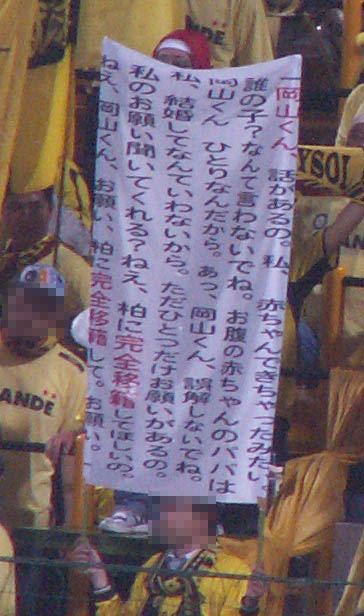 「岡山くん、話があるの。私、赤ちゃんできちゃったみたい。
誰の子？なんて言わないでね。お腹の赤ちゃんのパパは
岡山くん ひとりなんだから。あっ、岡山くん、誤解しないでね。
私、結婚してなんていわないから。ただひとつだけお願いがあるの。
私のお願い聞いてくれる？ねえ、柏に完全移籍してほしいの。
ねえ、岡山くん、お願い、柏に完全移籍して。お願い。」
YSOL
ANDE
ANDE